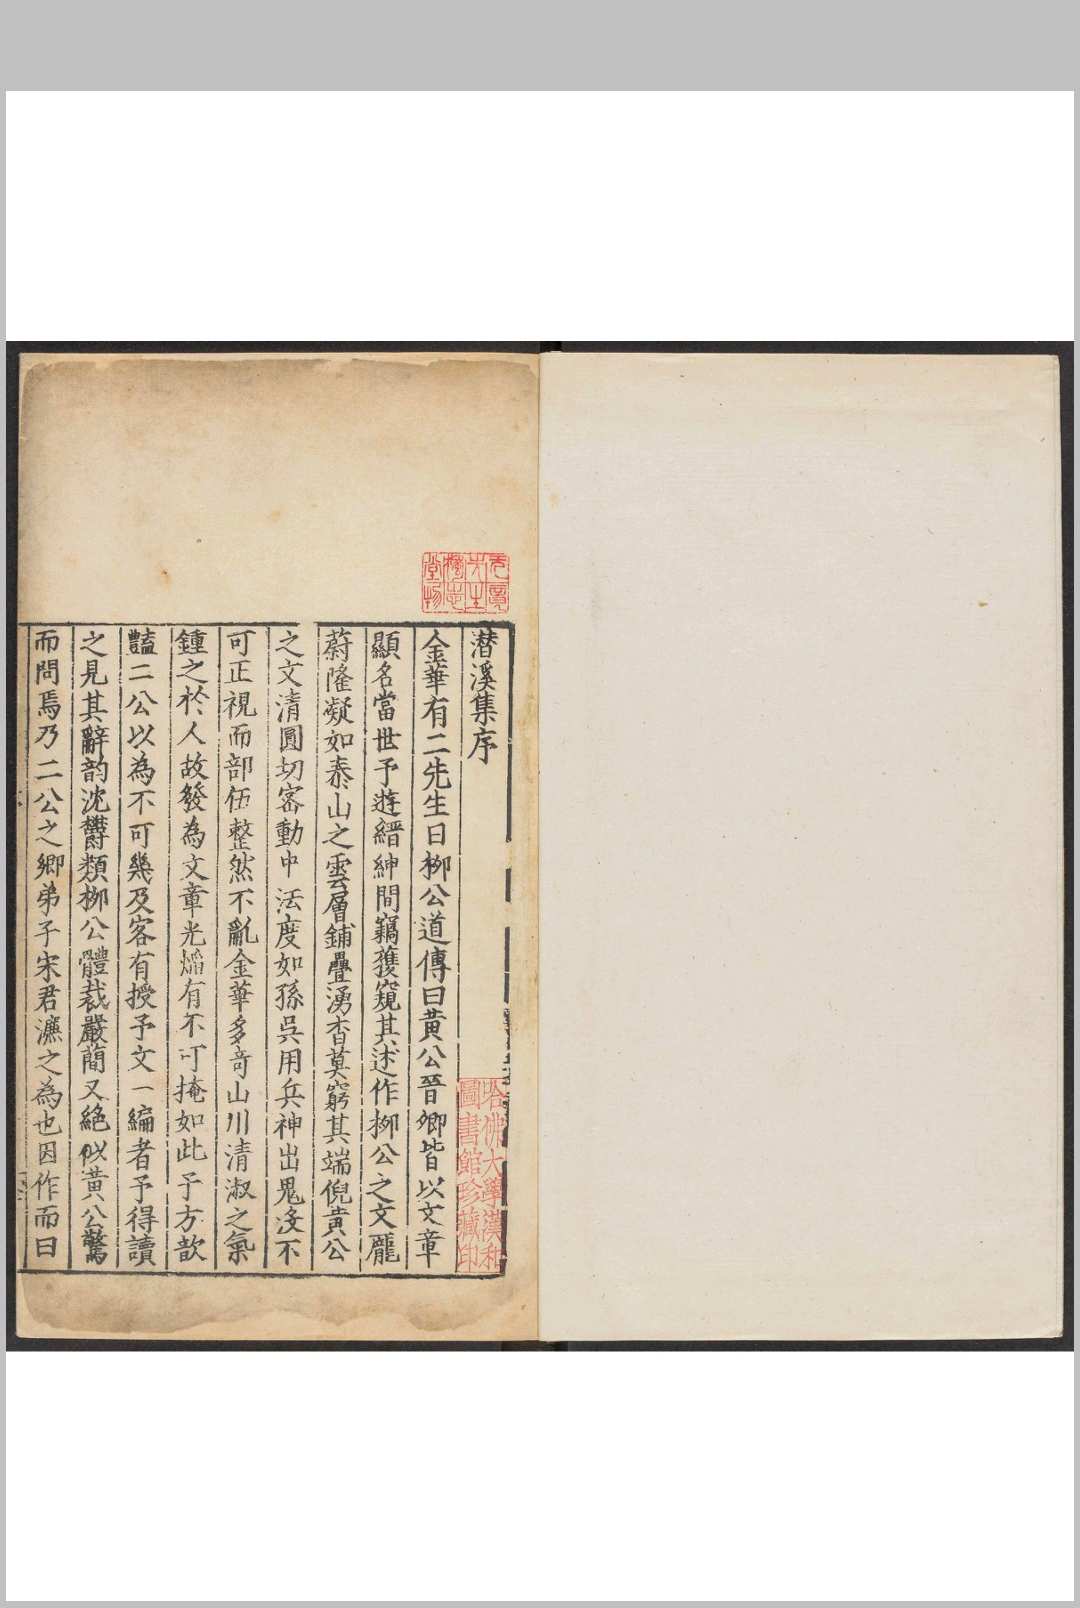 潜溪集序
金華有二先生曰栁公道傳曰黄公晉卿皆以文章
顯名當世予逰縉紳間竊獲窺其述作栁公之文龎
蔚隆凝如泰山之雲層鋪疊湧杳莫窮其端倪黄公
之文清圓切宻動中法度如孫吳用兵神出鬼没不
可正視而部伍整然不亂金華多竒山川清淑之氣
鍾之於人故發為文章光焰有不可掩如此予方歆
豔二公以為不可幾及客有授予文一編者予得讀
之見其辭韵沈欝類栁公體裁嚴簡又絶似黄公驚
而問焉乃二公之鄉弟子宋君濂之為也因作而曰
哈佛大學漢和
圖書館珍藏印